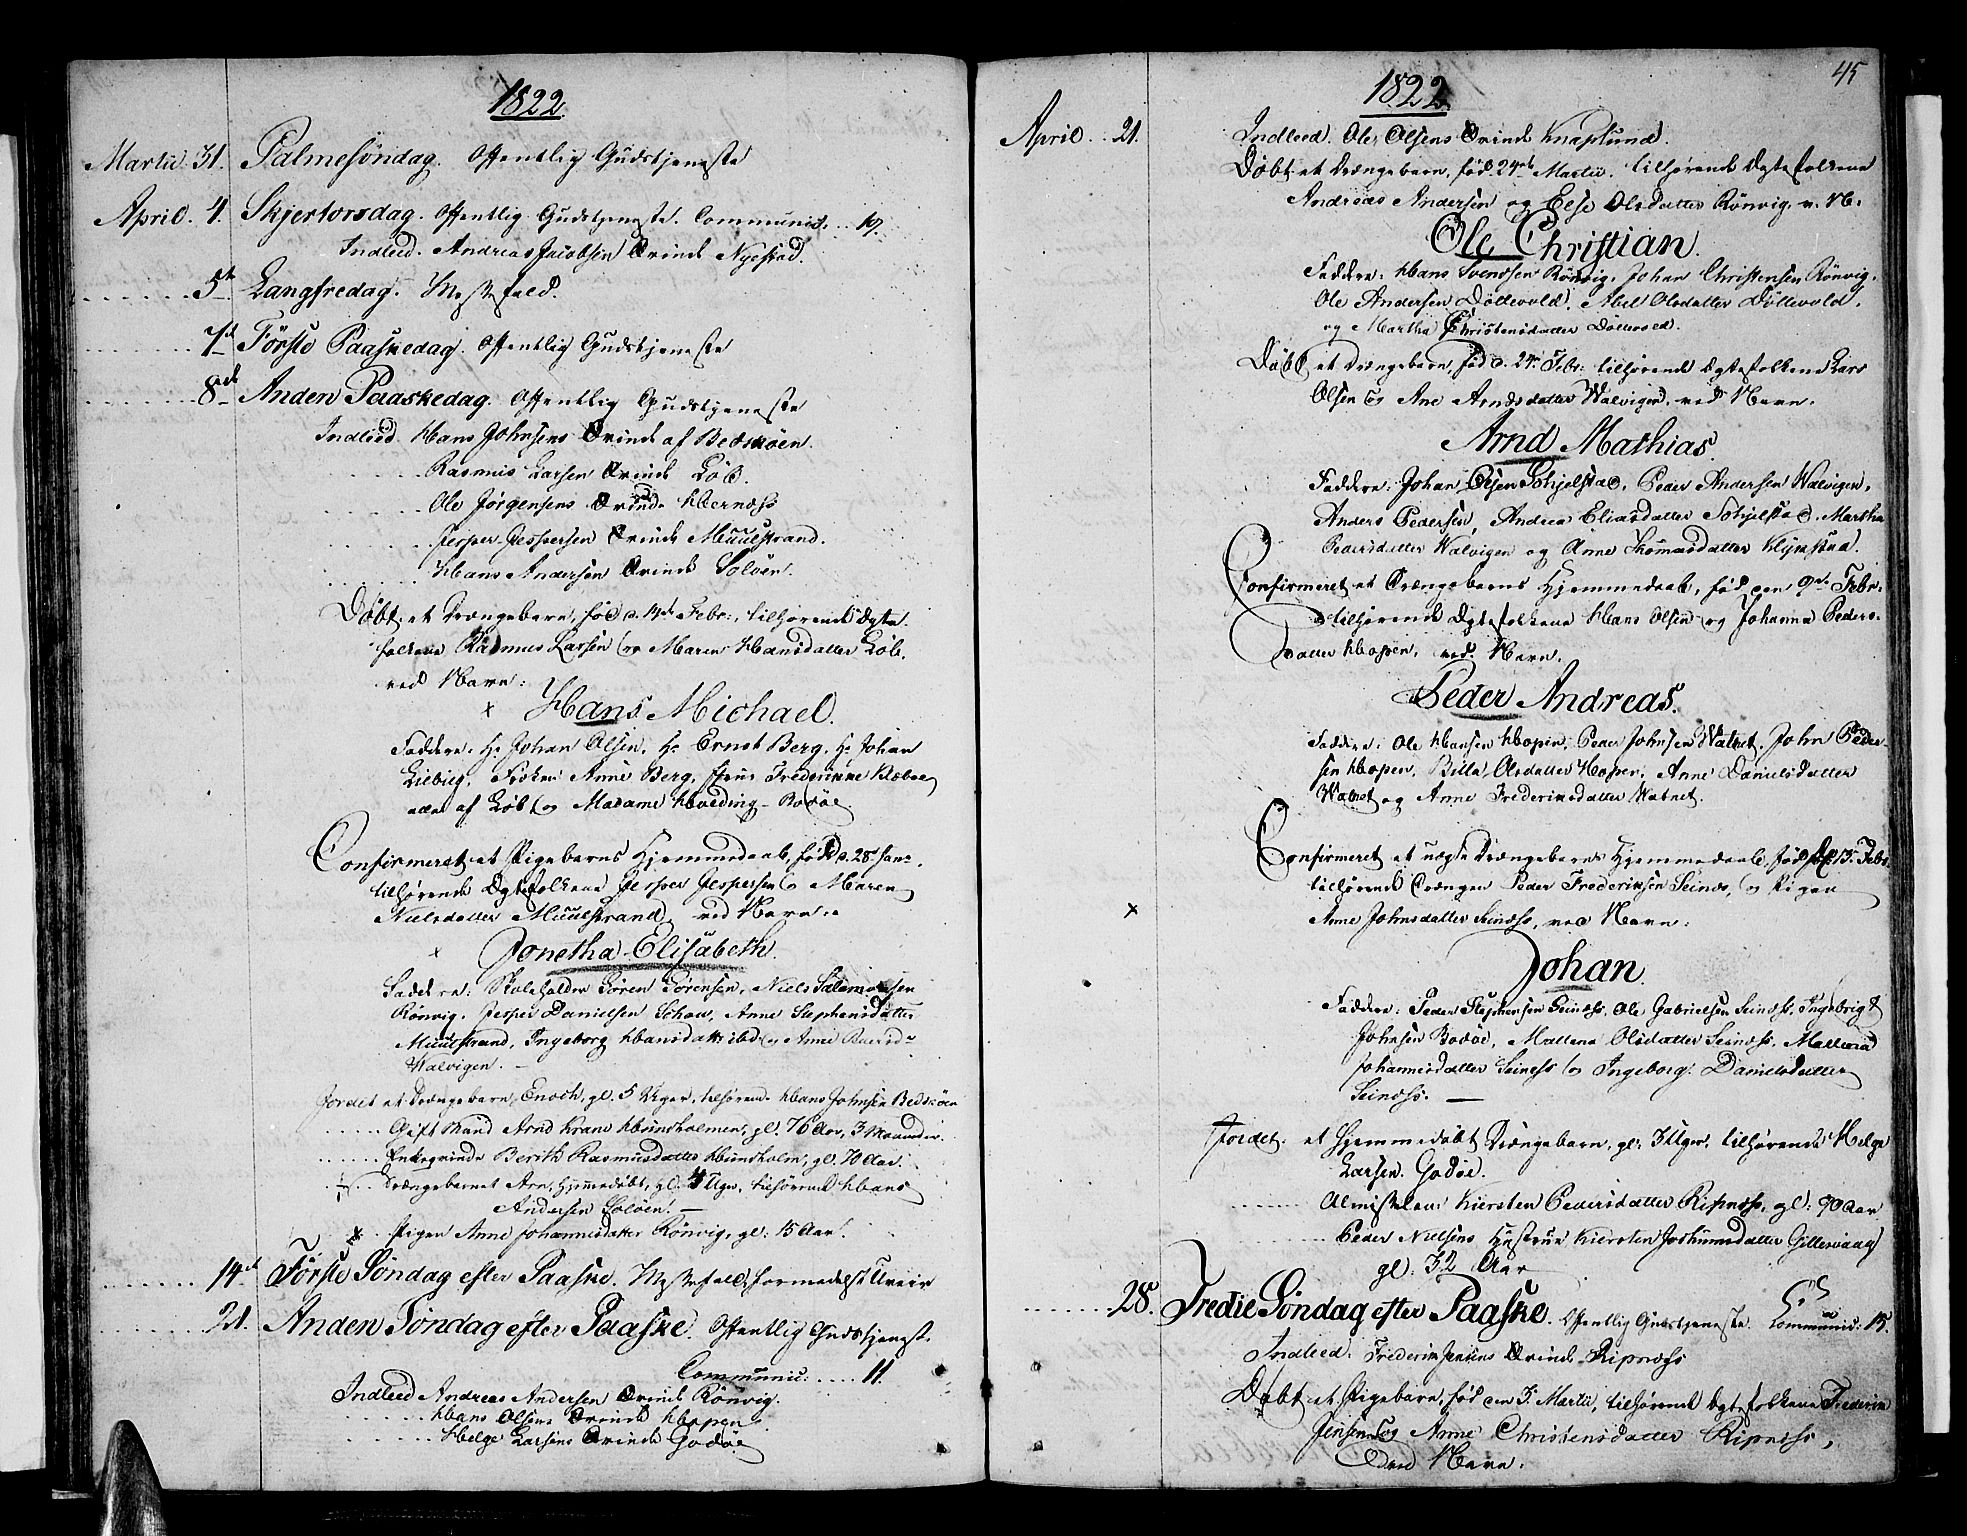 1822.
Martii. 31. Palmesöndag. Offentlig Gudstjeneste
April. 4. Skjertorsdag. Offentlig Gudstjeneste. Communic. 19.
Indleed. Andreas Jacobsen Qvinde Nyestad.
5te Langfredag. Messefald.
7de Förste Paaskedag. Offentlig Gudstjeneste
8de Anden Paaskedag. Offentlig Gudstjeneste
Indleed. Hans Johnsens Qvinde af
Rasmus Larsen Qvinde Löb.
Ole Jörgensens Qvinde Hernæss
Jesper Jespersen Qvinde Muulstrand.
Hans Andersen Qvinde Solöen.
Döbt et Drængebarn, föd d. 14de Febr:, tilhörende Ægte
folkene Rasmus Larsen og Maren Hansdatter Löb.
ved Navn:
Hans Michael.
Faddere. Hr Johan Olsen. Hr Ernst Berg. Hr Johan
Liebieg. Fröken Anne Berg,
af Löb og Madame Hveding Bodöe
Confirmeret et Pigebarns Hjemmedaab, föd d. 28 Janr.
tilhörende Ægtefolkene Jesper Jespersen og Maren
Nielsdatter Muulstrand, ved Navn:
Jonetha Elisabeth.
Faddere: Skoleholder Sören Sörensen, Niels Salamonsen
Rönvig. Jesper Danielsen Schau, Anne Stephensdatter
Muulstrand, Ingeborg Hansdatter ibd og Anne
Valvigen.
Jordet et Drængebarn, Enoch, gl. 5 Uger, tilhörende Hans Johnsen
Gift Mand Arnd Krane Hundholmen, gl. 76 Aar, 3 Maaneder.
Enkeqvinde Berith Rasmusdatter Hundholm, gl. 70 Aar.
Drængebarnet Arn, Hjemmedöbt, gl. 4 Uger, tilhörende Hans
Andersen Solöen.
Pigen Anne Johannesdatter Rönvig, gl: 15 Aar.
14de Förste Söndag efter Paaske. Messefald, formedelst Uveir
21. Anden Söndag efter Paaske. Offentlig Gudstjenest.
Communic: 11.
Indleed Andreas Andersen Qvinde Rönvig.
Hans Olsens Qvinde Hopen
Helge Larsens Qvinde Godöe
45
1822.
April. 21. Indleed. Ole Olsens Qvinde Knaplund.
Döbt et Drængebarn, föd 24de Martii. tilhörende Ægtefolkene
Andreas Andersen og Else Olsdatter Rönvig. v. N:
Ole Christian.
Faddere: Hans Svendsen Rönvig. Johan Christensen Rönvig.
Ole Andersen Döllevold. Abel Olsdatter Döllevold.
og Martha Christensdatter
Döbt et Drængebarn, föd d. 24 Febr: tilhörende Ægtefolkene Lars
Olsen og Ane Arndsdatter Walvigen, ved Navn:
Arnd Mathias.
Faddere: Johan Olsen Sohjelstad, Peder Andersen Walvigen,
Anders Pedersen, Andrea Eliasdatter Sohjelstad. Martha
Pedersdatter Walvigen og Anne Thomasdatter
Confirmeret et Drængebarns Hjemmedaab, föd den 9de Febr:
tilhörende Ægtefolkene Hans Olsen og Johanna Peders-
datter Hopen, ved Navn:
Peder Andreas.
Faddere: Ole Hansen Hopen, Peder Johnsen Watnet. John Peder-
sen Hopen. Olsdatter Hopen. Anne Danielsdatter
Watnet og Anne Frederiksdatter Watnet.
Confirmeret et uægte Drængebarns Hjemmedaab, föd d. 13. Febr.
tilhörende Drængen Peder Frederiksen Seinæs, og Pigen
Anne Johnsdatter Seinæss, ved Navn:
Johan.
Faddere: Peder Stephensen Seinæss. Ole Gabrielsen Seinæss. Ingebrigt
Johnsen Bodöe, Mallena Olsdatter Seinæss.
Johannesdatter Seinæss og Ingeborg Danielsdatter
Seinæss.
Jordet. et Hjemmedöbt Drængebarn, gl: 3 Uger. tilhörende Helge
Larsen. Godöe.
Almislem: Kiersten Pedersdatter Ripnæss, gl: 90 Aar
Peder Nielsens Hustrue Kiersten
gl: 32 Aar
28. Tredie Söndag efter Paaske. Offentlig Gudstjeneste. Communic: 15.
Indleed. Frederik Jensens Qvinde Ripnæss
Döbt et Pigebarn, föd den 3. Martii, tilhörende Ægtefolkene Frederik
Jensen og Anne Christensdatter Ripnæss,
ved Navn: